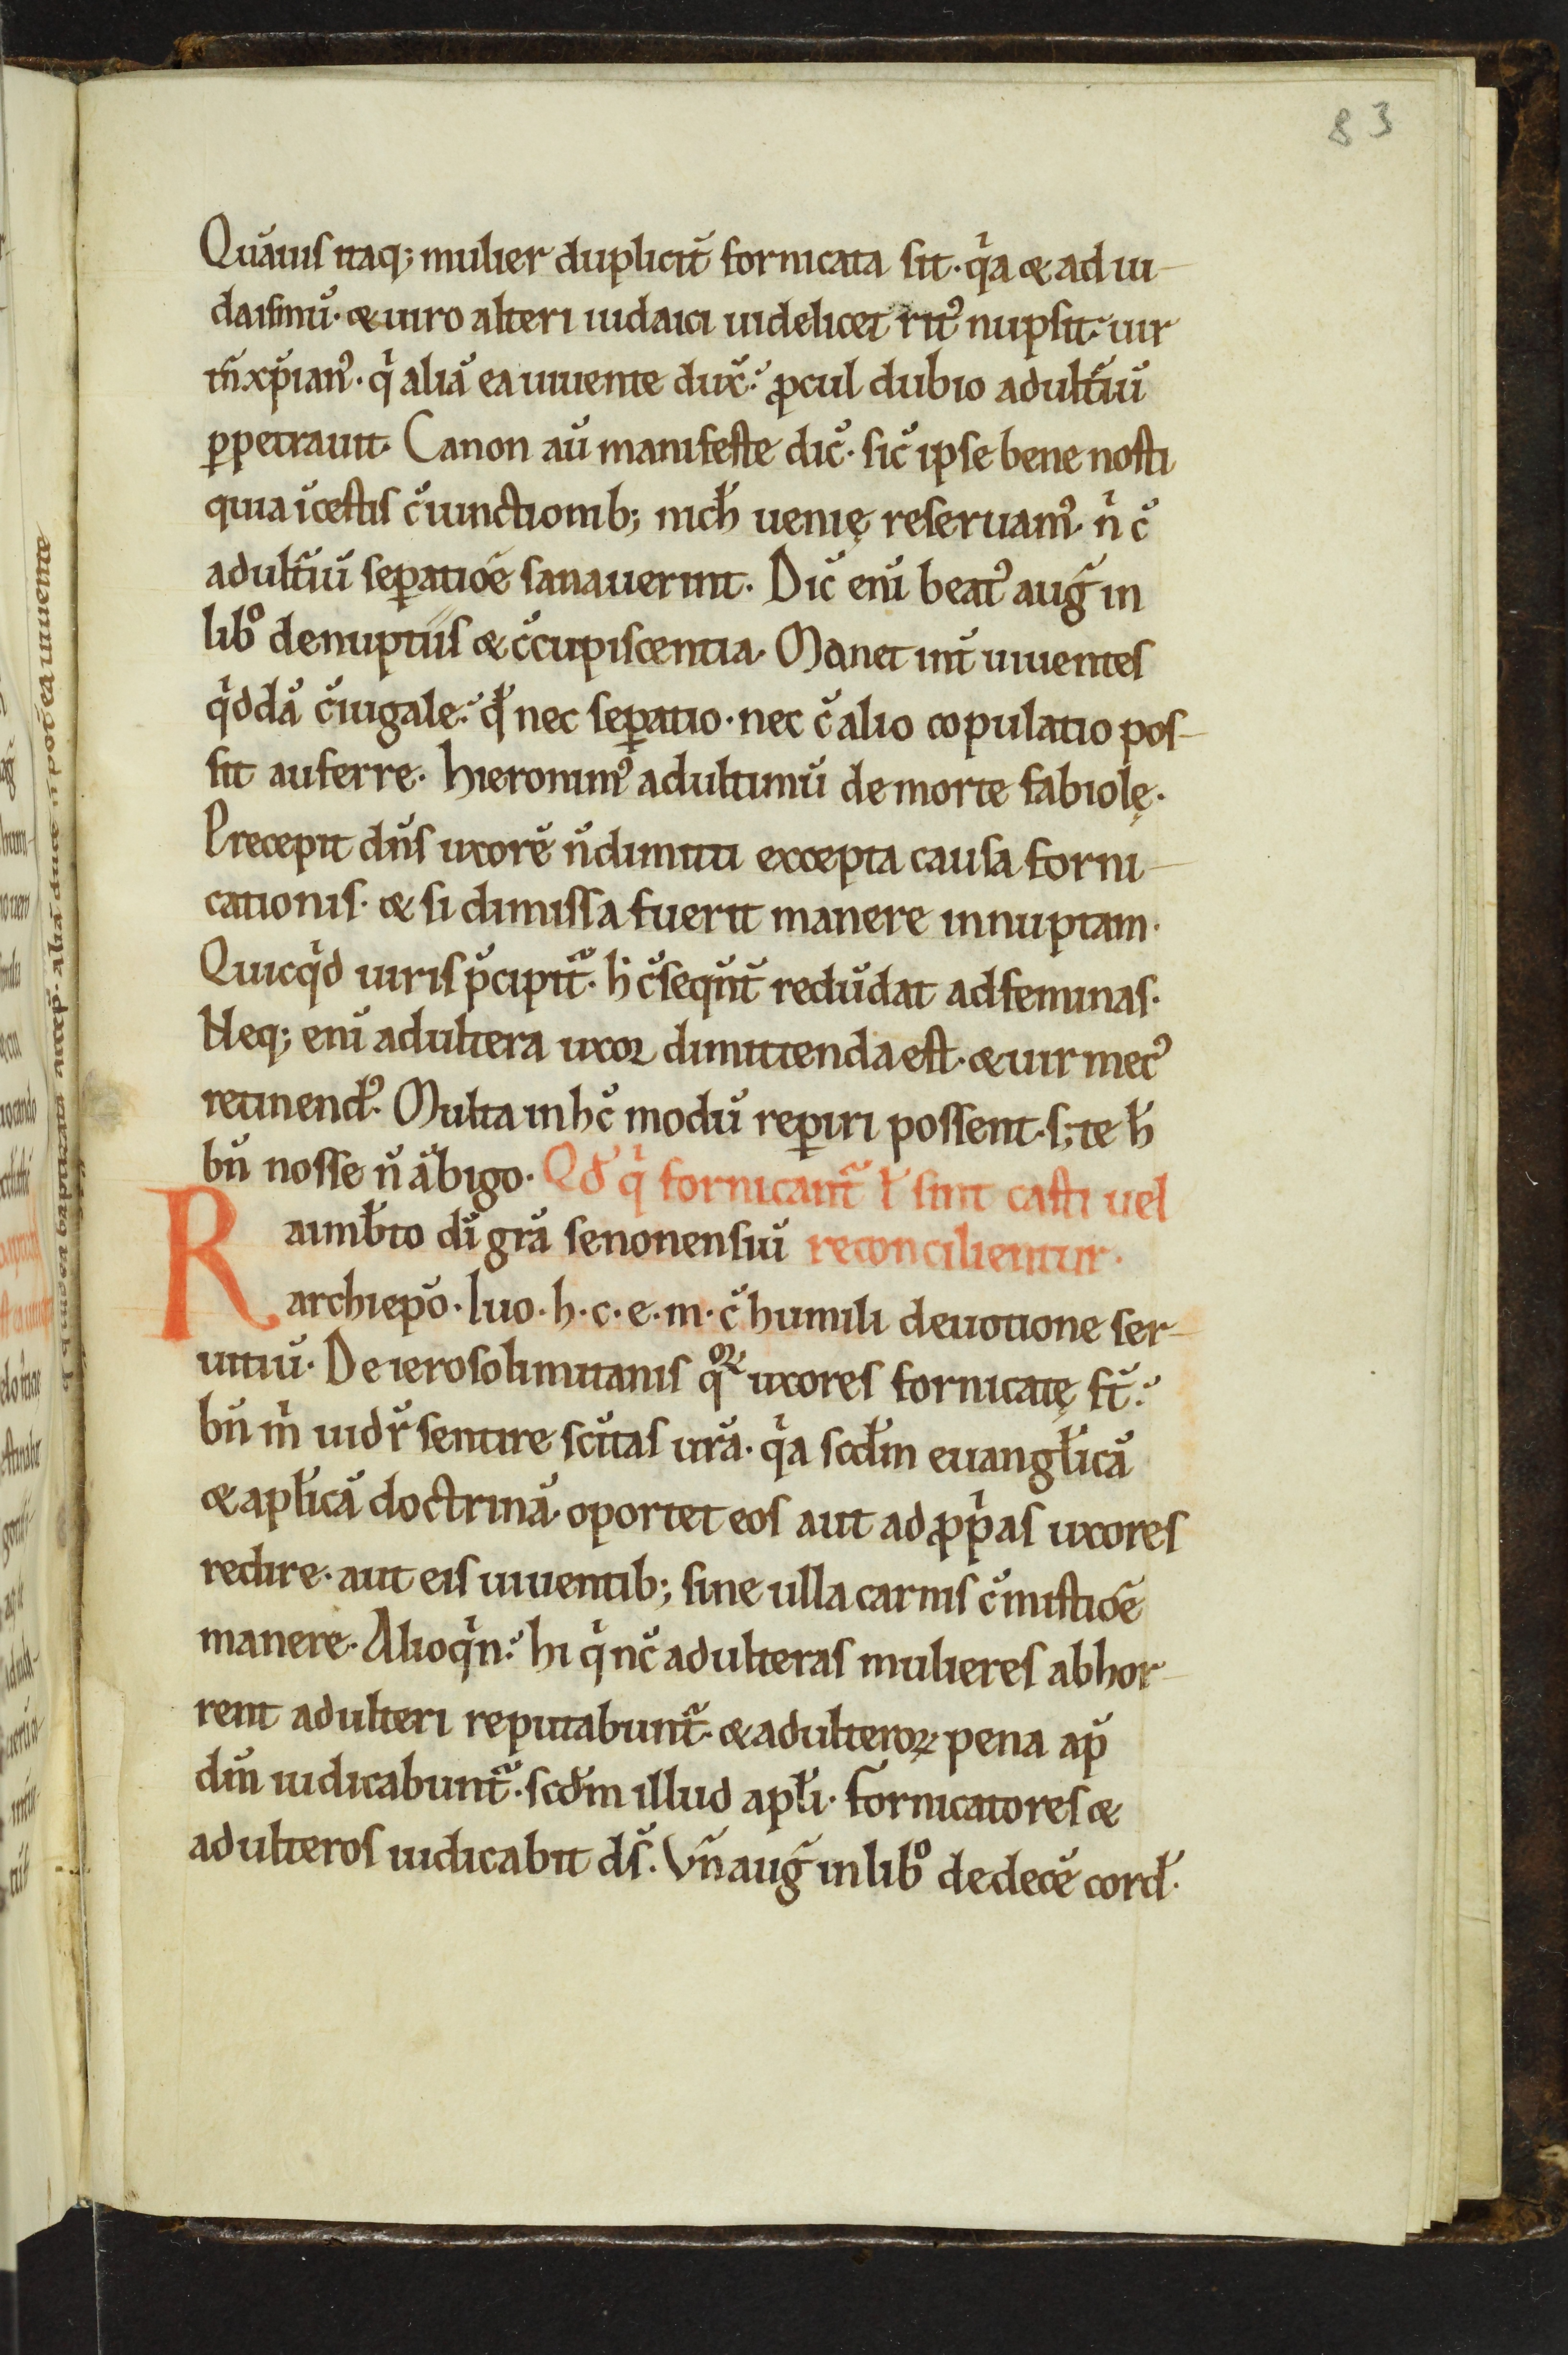 83
Quāuis itaq; mulier duplicit̄ fornicata sit · qͥa & ad iu-
daismū · & uiro alteri iudaici uidelicet ritꝰ nupsit · uir
tn̄ xp̄ianꝰ · qͥ aliā ea uiuente dux̄ · ꝓcul dubio adult̄iū
ꝑpetrauit · Canon aū manifeste dic̄ · sic̄ ipse bene nosti
quia īcestis c̄iunctionib; nich̄ uenię reseruamꝰ · nͥ c̄
adult̄iū seꝑatiōe sanauerint · Dic̄ enī beatꝰ auḡ in
libͦ de nuptiis & c̄cupiscentia · Manet int̄ uiuentes
qͥddā c̄iugale · qđ nec seꝑatio · nec c̄ alio copulatio pos-
sit auferre · hieronimꝰ ad ultimū de morte fabiolę ·
Precepit dn̄s uxorē n̄ dimitti excepta causa forni-
cationis · & si dimissa fuerit manere innuptam ·
Quicqͥd uiris p̄cipit᷑ · h̄ c̄seqūt̄ redūdat ad feminas ·
Neq; enī adultera uxor dimittenda est · & uir mec̄ꝰ
retinendꝰ · Multa in hc̄ modū reꝑiri possent · s; te h̄
bn̄ nosse n̄ ābigo · Qđ qͥ fornicant᷑ ł sint casti uel
Raimb̄to dī gr̄a senonensiū reconcilientur ·
archiep̄o · Iuo · h · c · e · m · c̄ humili deuotione ser-
uitiū · De ierosolimitanis qͦꝝ uxores fornicatę st̄ ·
bn̄ mͥ uidr̄ sentire sc̄itas ur̄a · qͥa scd̄m euangl̄icā
& apl̄icā doctrinā · oportet eos aut ad ꝓpͥas uxores
redire · aut eis uiuentib; sine ulla carnis c̄mistiōe
manere · Alioqͥn · hi qͥ nc̄ adulteras mulieres abhor-
rent adulteri reputabunt᷑ · & adulteroꝝ pena ap̄
dm̄ iudicabunt᷑ · scd̄m illud apl̄i · fornicatores &
adulteros iudicabit ds̄ · Vn̄ auḡ in libͦ de decē cord̄ ·